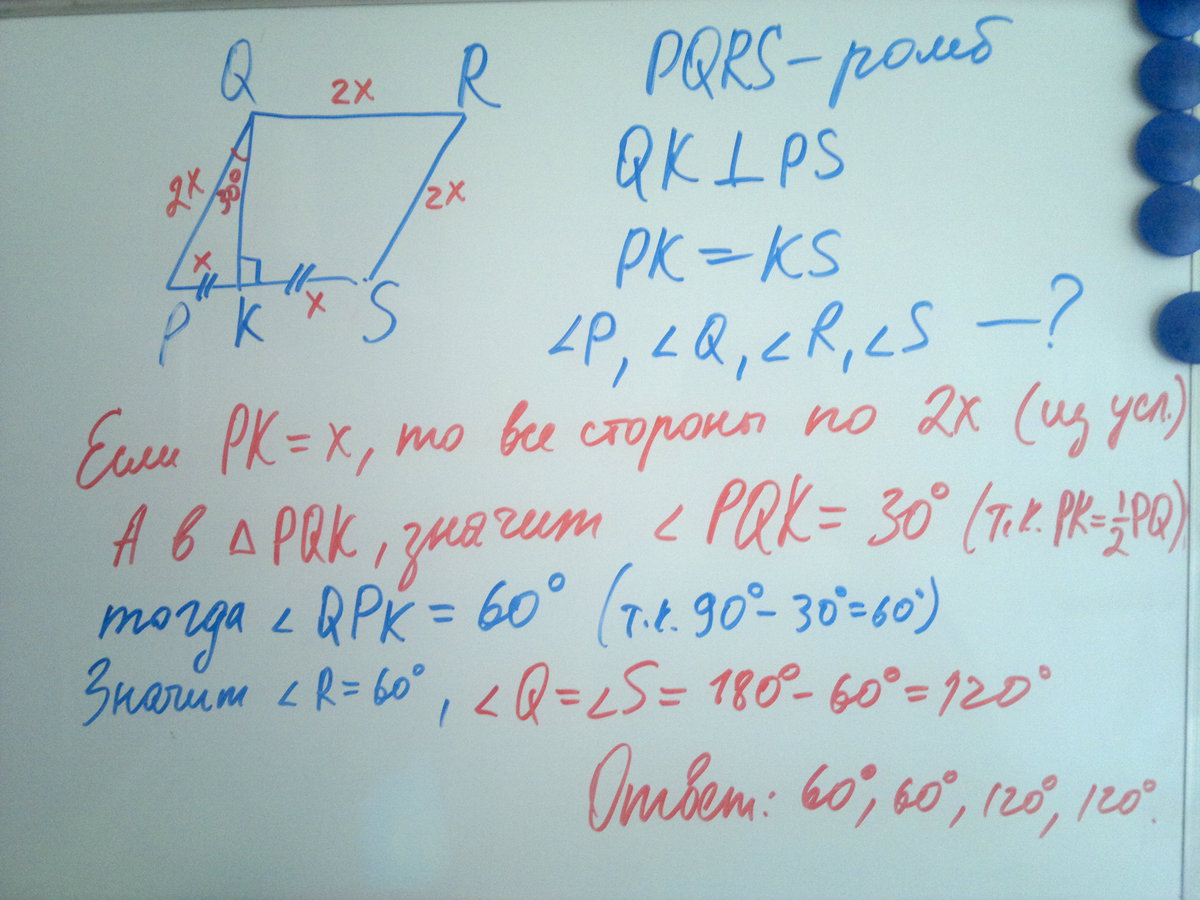 Q
R
2x
2x
30°
2x
x
x
P
K
S
PQRS – ромб
QK ⊥ PS
PK = KS
∠P, ∠Q, ∠R, ∠S – ?
Если PK = x, то все стороны по 2x (из усл.)
А в △PQK, значит ∠PQK = 30° (т.к. PK = 1/2 PQ)
тогда ∠QPK = 60° (т.к. 90° – 30° = 60°)
Значит ∠R = 60°, ∠Q = ∠S = 180° – 60° = 120°
Ответ: 60°, 60°, 120°, 120°.